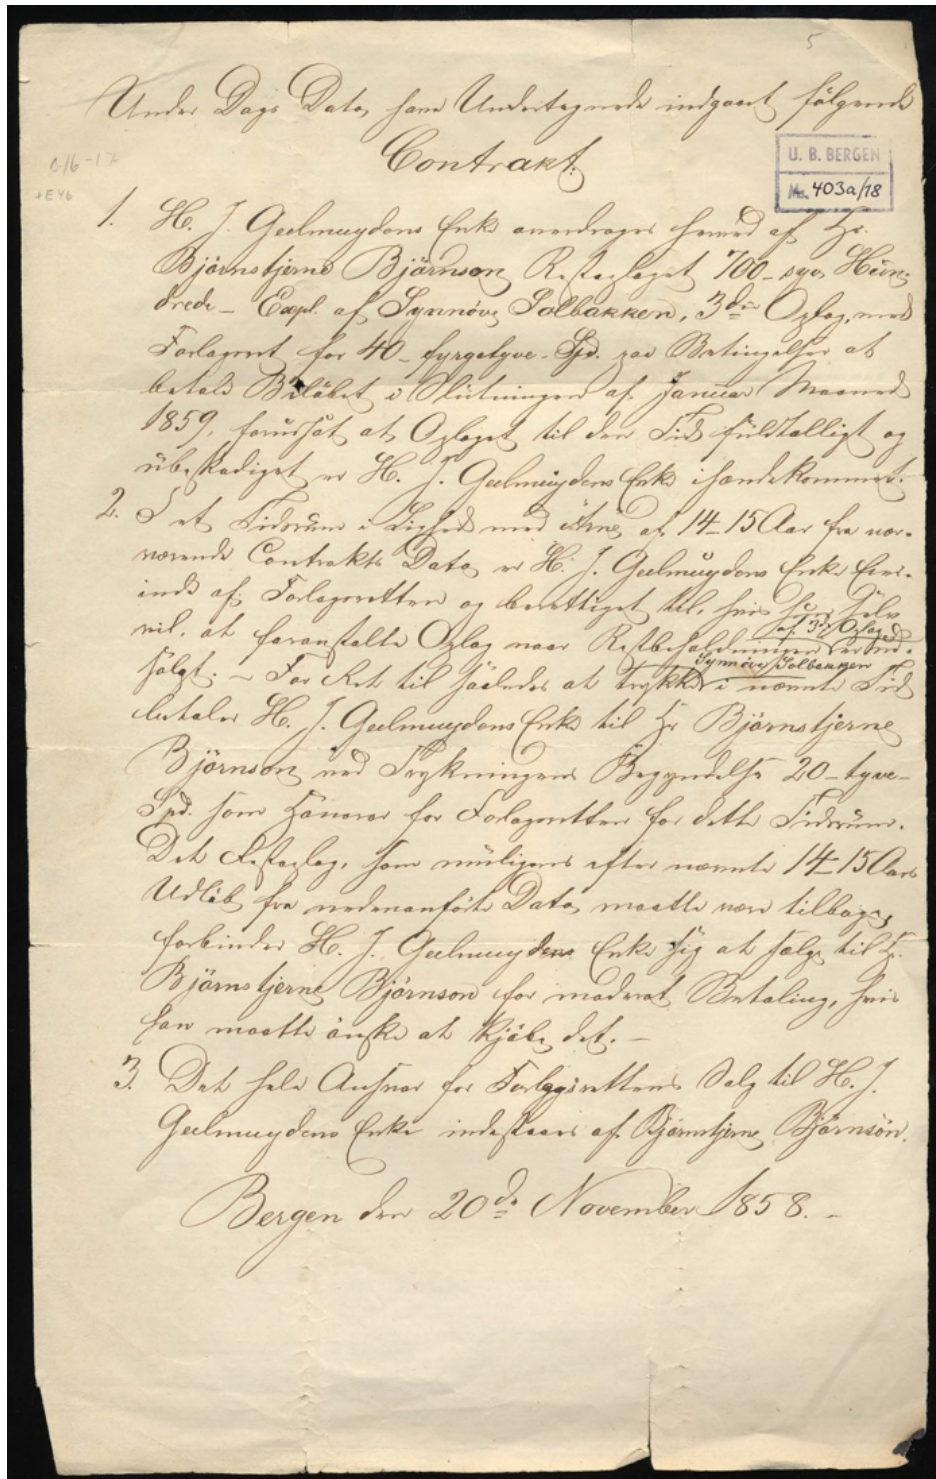 5
Under Dags Dato have Undertegnede indgaaet følgende
Contrakt:
U. B. BERGEN
No. 403a/18
1. H. J. Geelmuydens Enke overdrages herved af Hr.
Björnstjerne Björnson Restoplaget 700 – syv Hün-
drede – Expl. af Synnöve Solbakken, 3die Oplag, med
Forlagsret for 40 – fyrgetyve – Spd. paa Betingelse at
betale Belöbet i Slutningen af Januar Maaned
1859, forudsat at Oplaget til den Tid fuldtalligt og
übeskadiget er H. J. Geelmuydens Enke ihændekommet.
2. I et Tidsrüm i Lighed med af 14–15 Aar fra nær-
værende Contrakts Dato er H. J. Geelmuydens Enke Eier-
inde af Forlagsretten og berettiget til, hvis hun selv
af 3die Oplag
vil, at foranstalte Oplag naar Restbeholdningen er ud-
Synnöve Solbakken
solgt. – For Ret til saaledes at trykke i nævnte Tid
betaler H. J. Geelmuydens Enke til Hr Björnstjerne
Björnson ved Trykningens Begyndelse 20 – tyve –
Spd. som Honorar for Forlagsretten for dette Tidsrüm.
Det Restoplag, som muligens efter nævnte 14–15 Aars
Udlöb fra nedenanförte Dato maatte være tilbage,
forbinder H. J. Geelmuydens Enke sig at sælge til Hr.
Björnstjerne Björnson for moderat Betaling, hvis
han maatte önske at kjöbe det. –
3. Det hele Ansvar for Forlagsrettens Salg til H. J.
Geelmuydens Enke indestaaes af Björnstjerne Björnsön.
Bergen den 20de November 1858. –